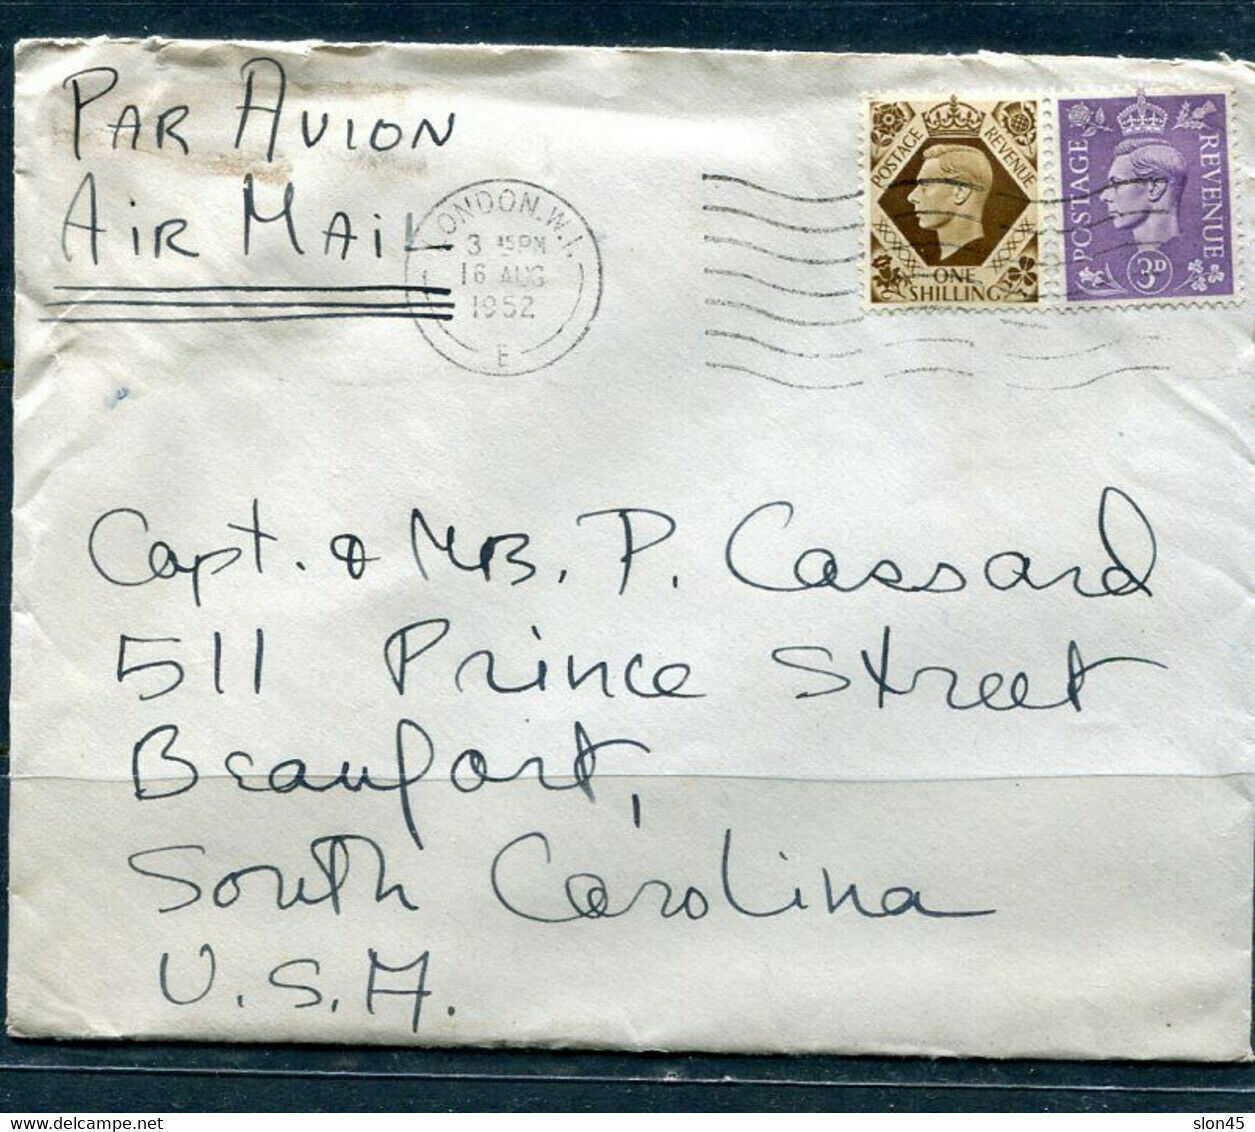 PAR AVION
AIR MAIL
LONDON.W.1.
3 45PM
16 AUG
1952
E
POSTAGE REVENUE
ONE SHILLING
POSTAGE REVENUE
3D
Capt. & MRS. P. Cassard
511 Prince Street
Beaufort,
South Carolina
U.S.A.
slon45